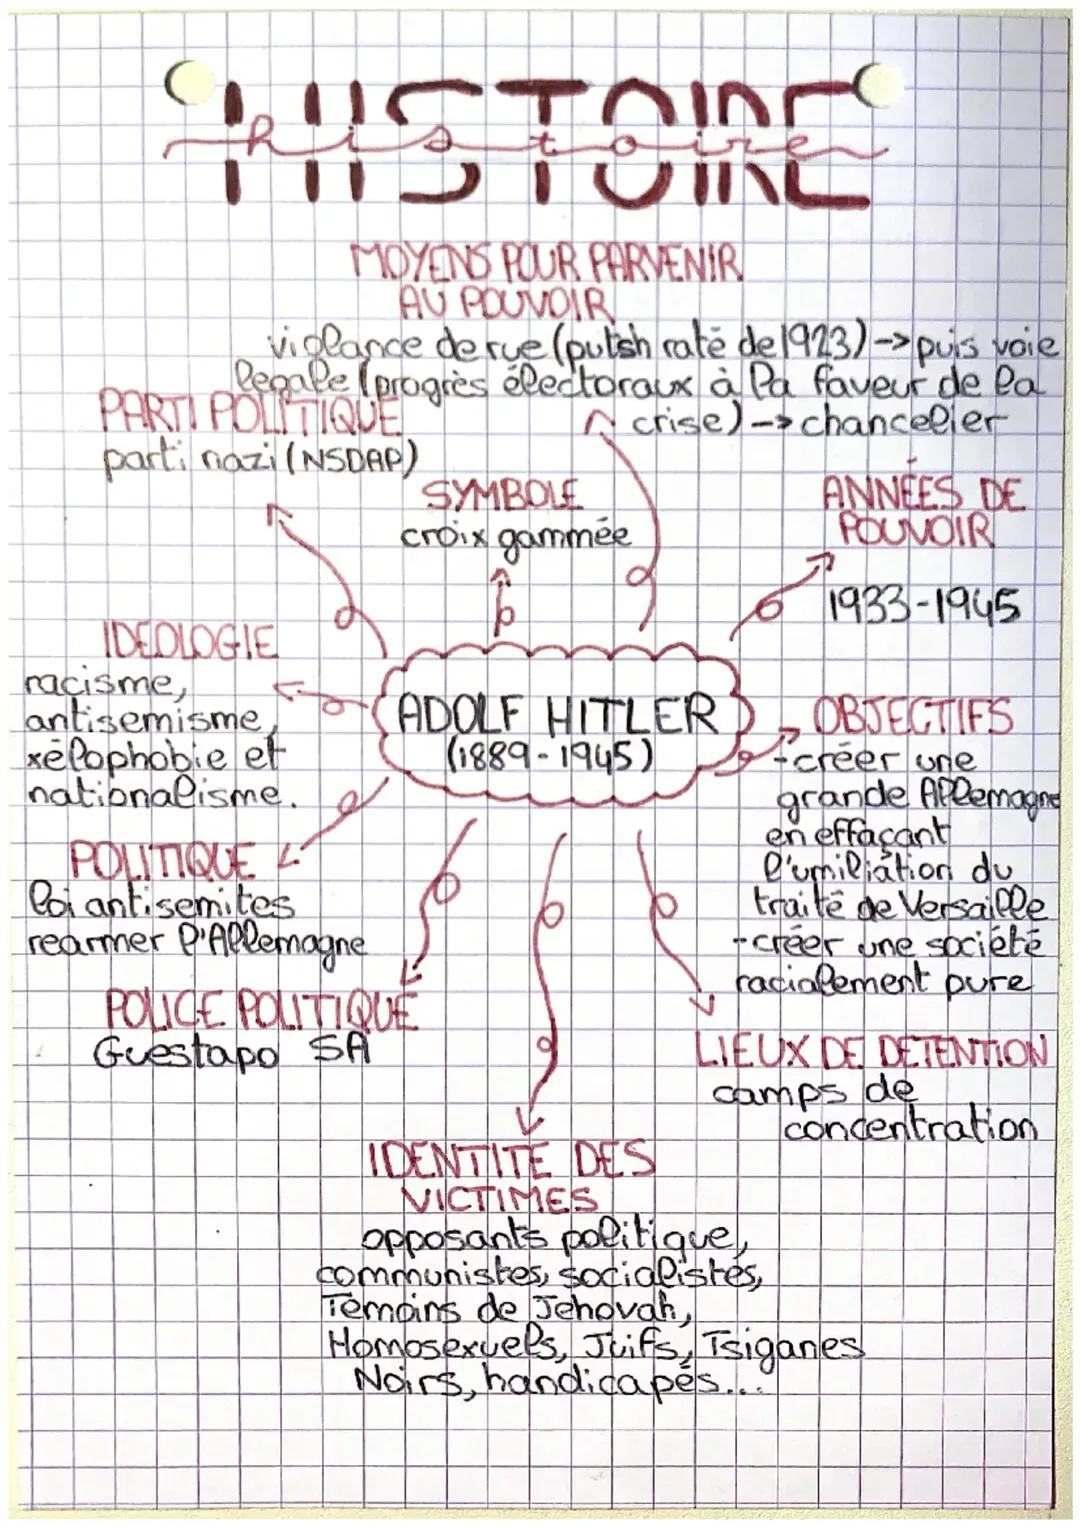 HISTOIRE
histoire
MOYENS POUR PARVENIR
AU POUVOIR
violance de rue (putsh raté de 1923) -> puis voie
legale (progrès électoraux à la faveur de la
crise) -> chancelier
PARTI POLITIQUE
parti nazi (NSDAP)
SYMBOLE
croix gammée
ANNÉES DE
POUVOIR
1933-1945
IDEOLOGIE
racisme,
antisemisme,
xélophobie et
nationalisme.
ADOLF HITLER
(1889-1945)
OBJECTIFS
-créer une
grande Allemagne
en effaçant
l'umiliation du
traité de Versaille
-créer une société
racialement pure
POLITIQUE
loi antisemites
rearmer l'Allemagne
POLICE POLITIQUE
Guestapo SA
LIEUX DE DETENTION
camps de
concentration
IDENTITE DES
VICTIMES
opposants politique,
communistes, socialistes,
Témoins de Jehovah,
Homosexuels, Juifs, Tsiganes
Noirs, handicapés...